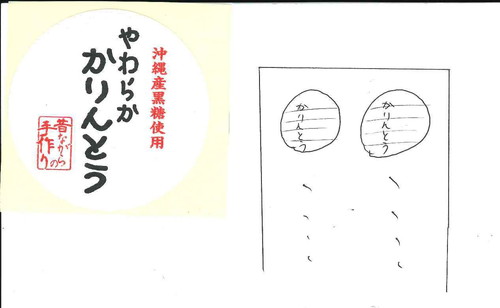 沖縄産黒糖使用
やわらか
かりんとう
昔ながらの
手作り
かりんとう
かりんとう